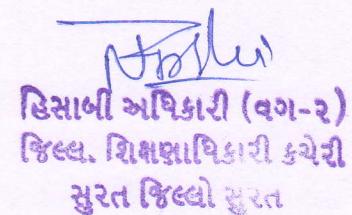 હિસાબી અધિકારી (વગ-૨)
જિલ્લ. શિક્ષણાધિકારી કચેરી
સુરત જિલ્લો સુરત